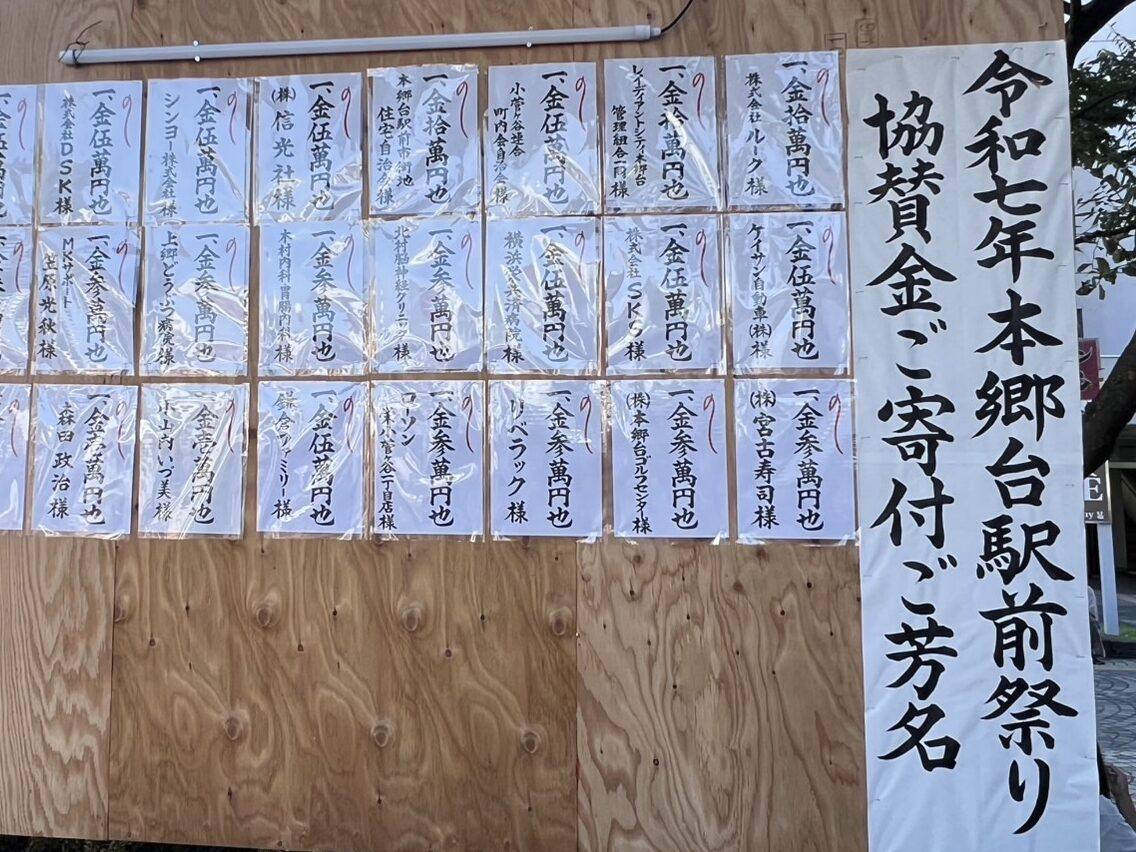 令和七年本郷台駅前祭り
協賛金ご寄付ご芳名
一、金拾萬円也
株式会社ルーク様
一、金拾萬円也
レイディアントシティ本郷台
管理組合一同様
一、金伍萬円也
小菅ケ谷連合
町内会自治会様
一、金拾萬円也
本郷台駅前市街地
住宅自治会様
一、金伍萬円也
(株)信光社様
一、金伍萬円也
シンヨー株式会社様
一、金伍萬円也
株式会社DSK様
一、金伍萬円也
一、金伍萬円也
ケイサン自動車(株)様
一、金伍萬円也
株式会社SKS様
一、金伍萬円也
横浜栄共済病院様
一、金参萬円也
北村脳神経クリニック様
一、金参萬円也
木村内科・胃腸内科様
一、金参萬円也
上郷どうぶつ病院様
一、金参萬円也
MKサポート
笠原光秋様
一、金参萬円也
(株)宮古寿司様
一、金参萬円也
(株)本郷台ゴルフセンター様
一、金参萬円也
リベラック様
一、金参萬円也
ローソン
小菅ヶ谷一丁目店様
一、金伍萬円也
鎌倉ファミリー様
一、金壱萬円也
小山内いづ美様
一、金壱萬円也
森田政治様